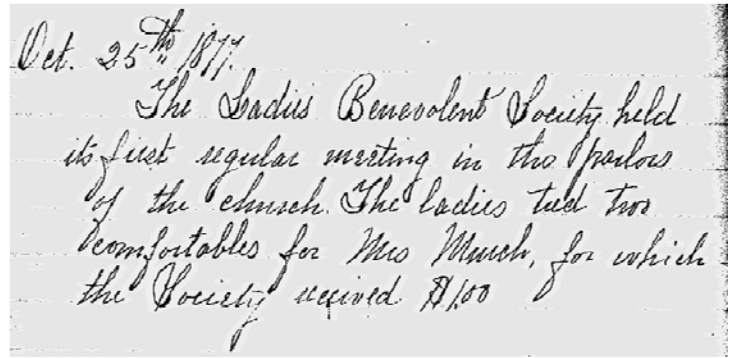 Oct. 25th 1877.
The Ladies Benevolent Society held
its first regular meeting in the parlors
of the church. The ladies tied two
comfortables for Mrs Murch, for which
the Society received $1.00